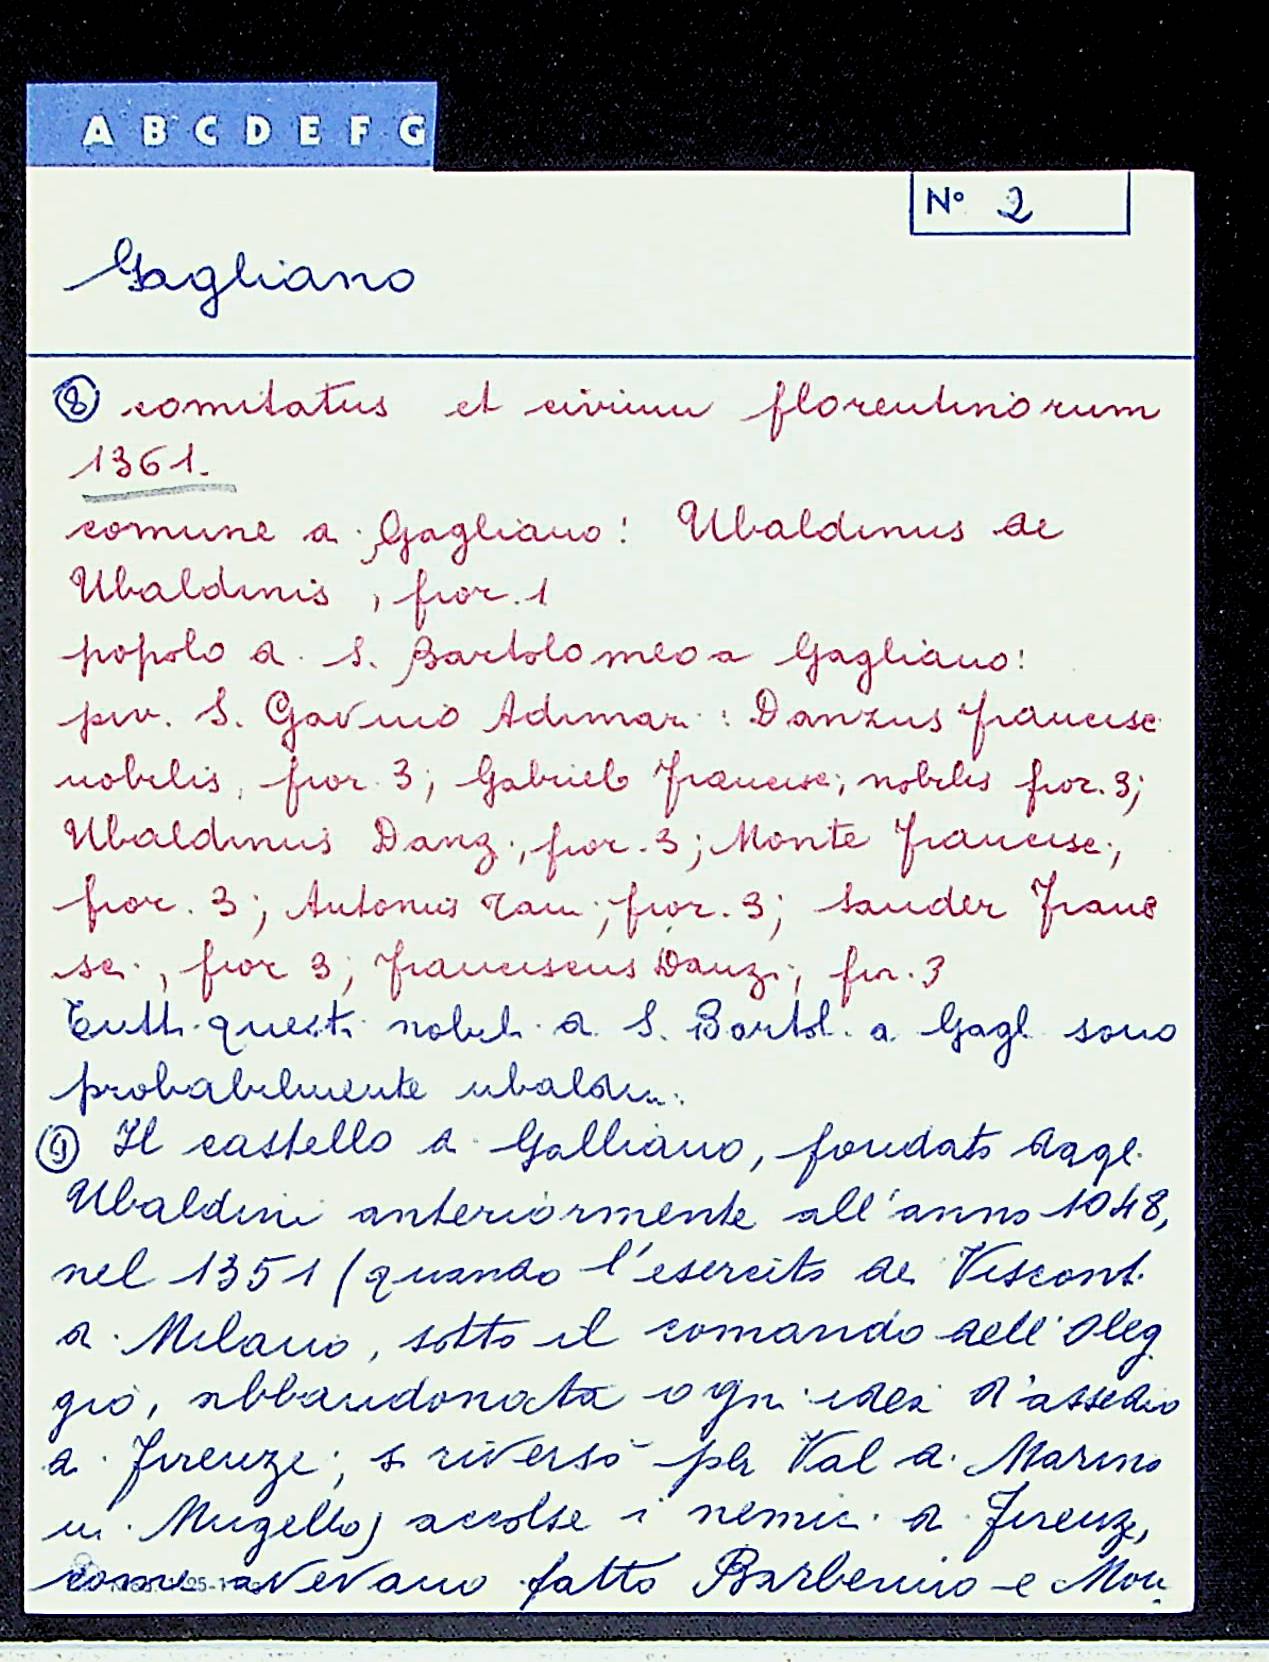 A B C D E F G
N° 2
Gagliano
⑧ comitatus et civium florentinorum
1361.
comune di Gagliano: Ubaldinus de
Ubaldinis, fior. 1
popolo di S. Bartolomeo a Gagliano:
piv. S. Gavino Adimari: Danzus francisc
nobilis, fior. 3; Gabriel francisc; nobilis fior. 3;
Ubaldinus Danz., fior. 3; Monte francisc.,
fior. 3; Antonius fior. 3; Sander Franc
sci., fior 3; franciscus Danzi, fior. 3
Tutti questi nobili di S. Bartol. a Gagl. sono
probabilmente ubaldini.
⑨ Il castello di Galliano, fondato dagli
Ubaldini anteriormente all'anno 1048,
nel 1351 (quando l'esercito dei Visconti
di Milano, sotto il comando dell'Oleg
gio, abbandonata ogni idea d'assedio
a Firenze, si riversò per Val di Marina
in Mugello) accolse i nemici di Firenze,
come avevano fatto Barberino e Mon